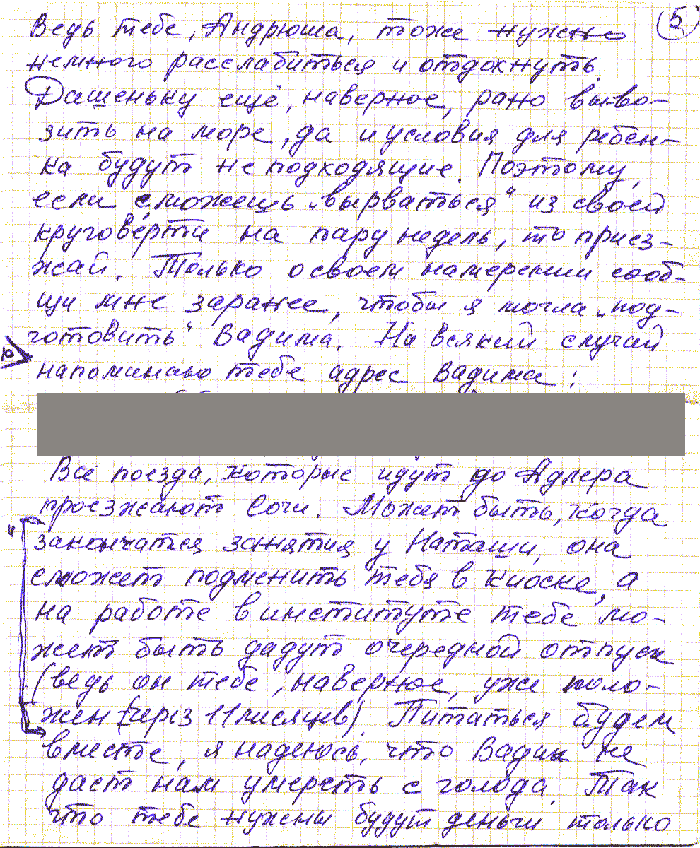 5
Ведь тебе, Андрюша, тоже нужно
немного расслабиться и отдохнуть.
Дашеньку ещё, наверное, рано выво-
зить на море, да и условия для ребён-
ка будут не подходящие. Поэтому,
если сможешь „вырваться" из своей
круговерти на пару недель, то приез-
жай. Только о своём намерении сооб-
щи мне заранее, чтобы я могла „под-
готовить" Вадима. На всякий случай
напоминаю тебе адрес Вадима:
Все поезда, которые идут до Адлера
проезжают Сочи. Может быть, когда
закончатся занятия у Наташи, она
сможет подменить тебя в киоске, а
на работе в институте тебе мо-
жет быть дадут очередной отпуск
(ведь он тебе, наверное, уже поло-
жен (через 11 месяцев). Питаться будем
вместе, я надеюсь, что Вадим не
даст нам умереть с голода. Так
что тебе нужны будут деньги только